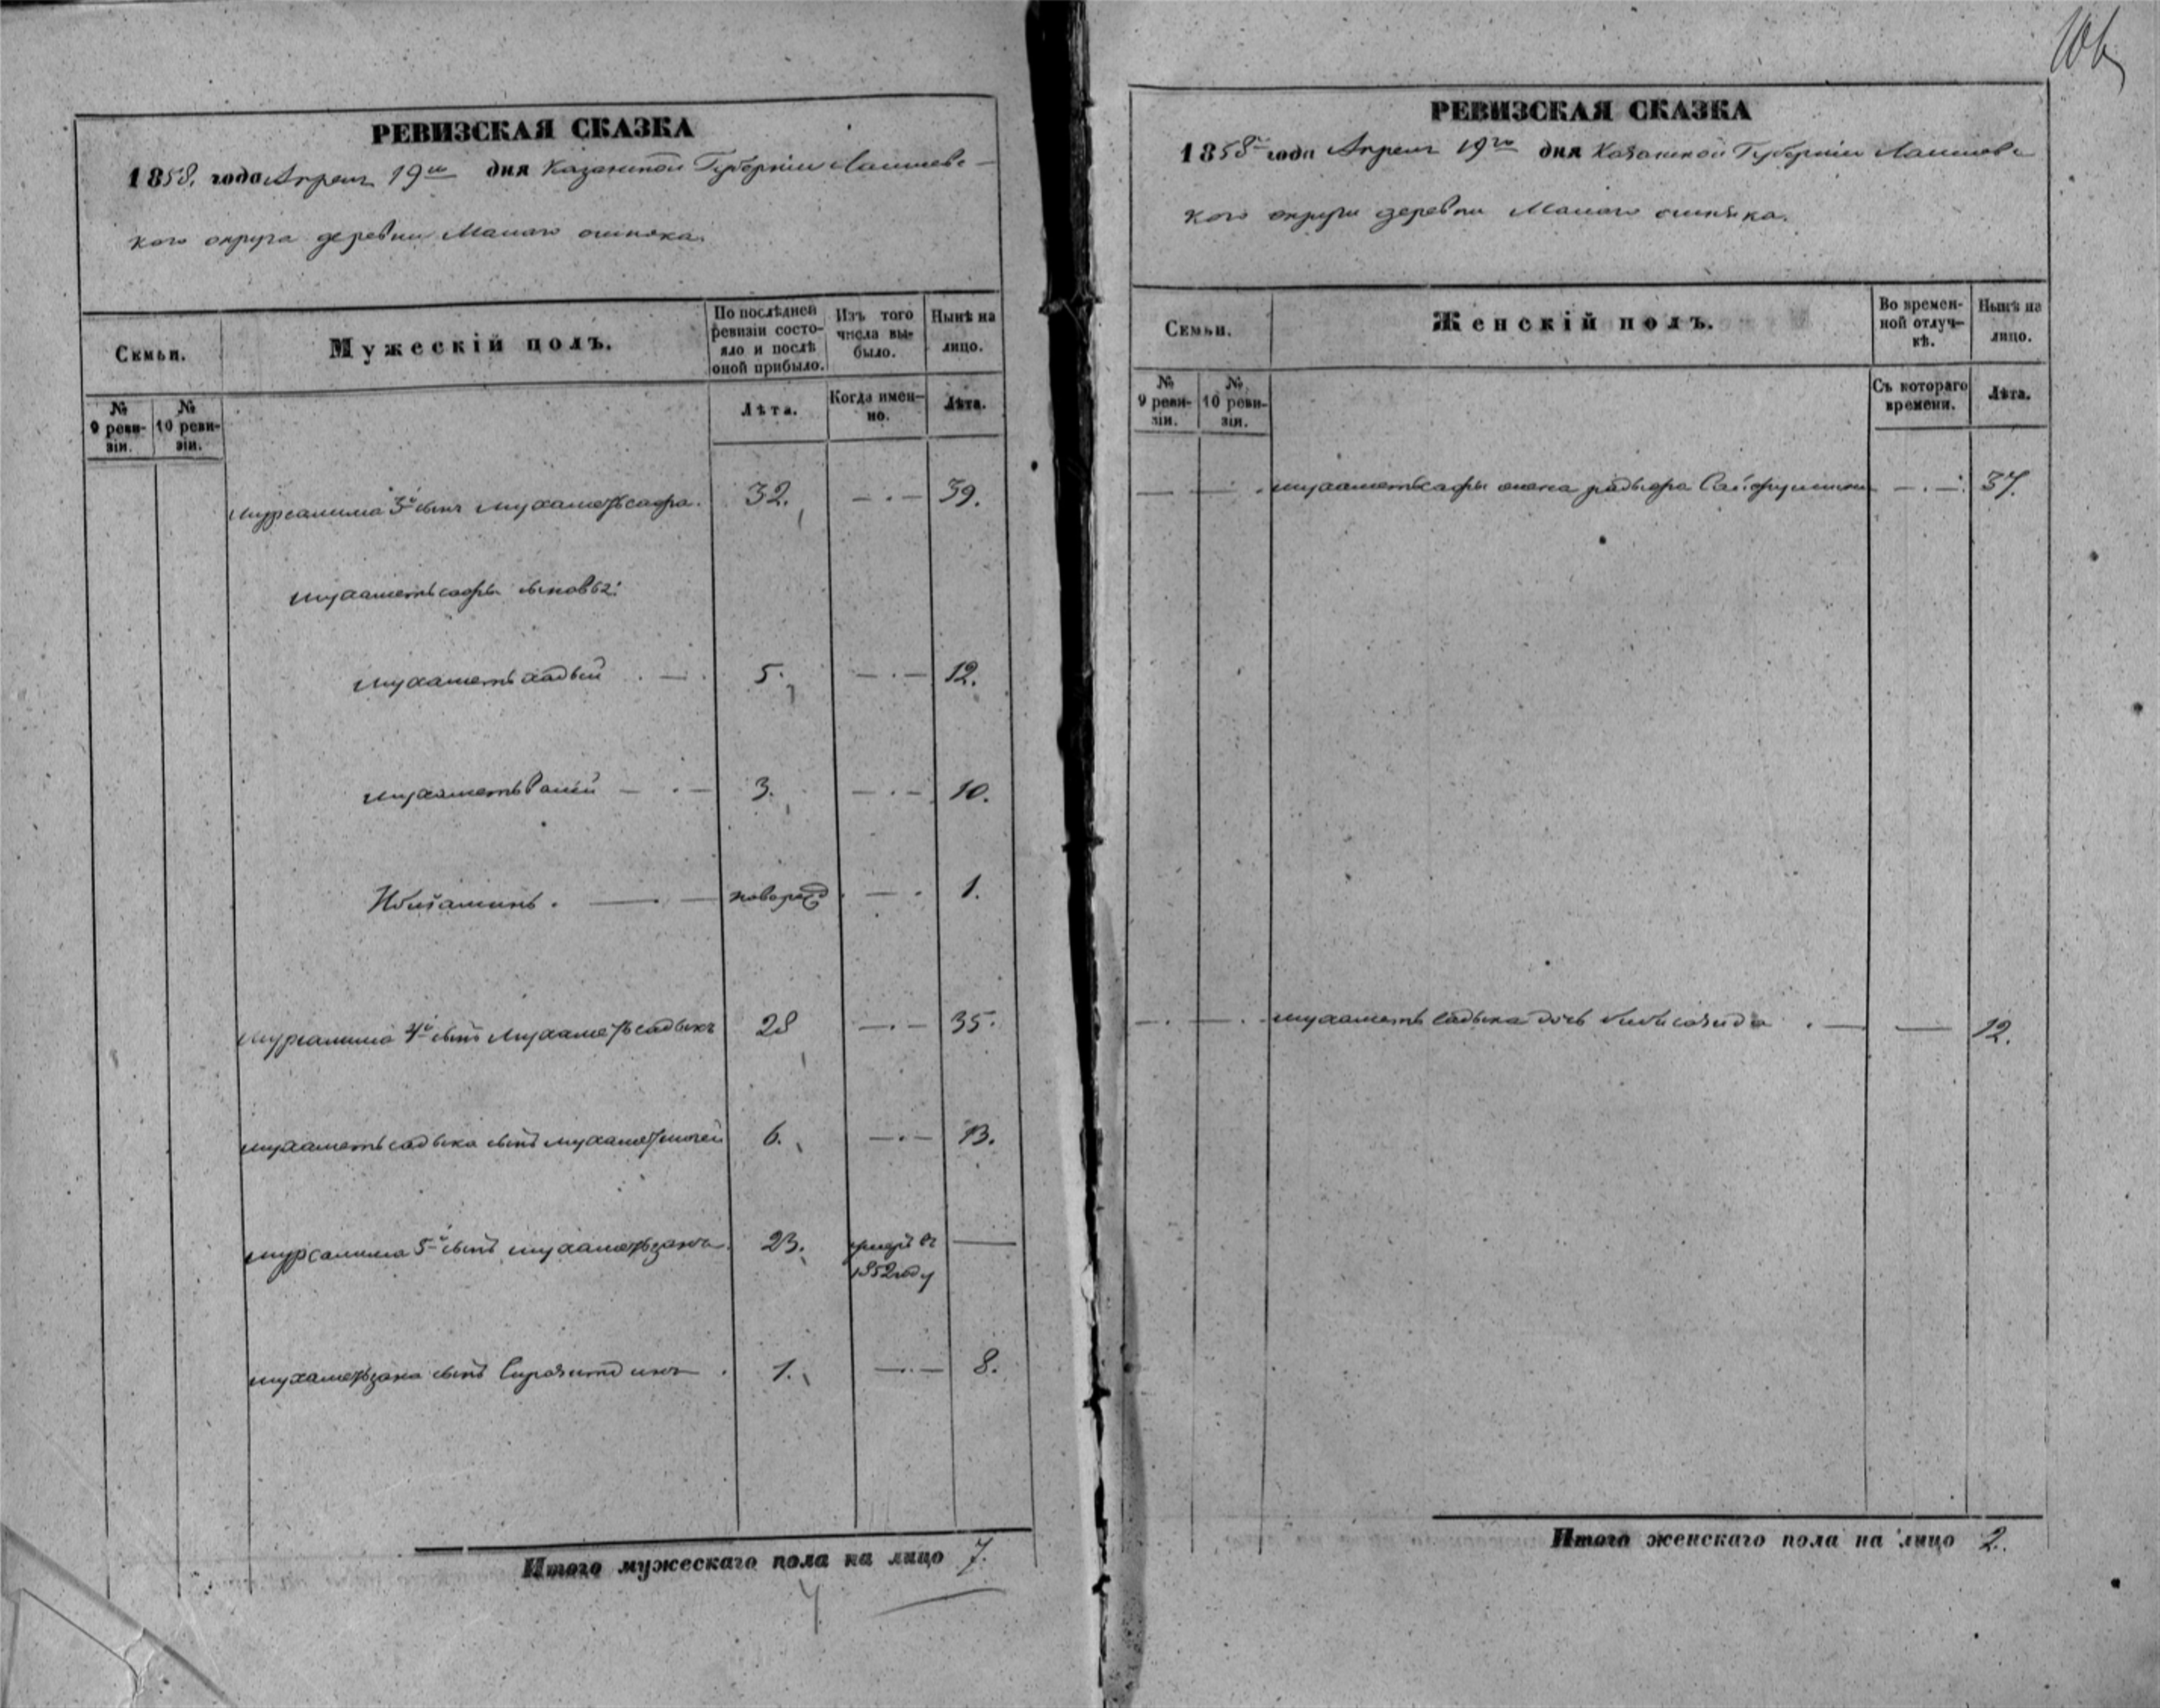 РЕВИЗСКАЯ СКАЗКА
1858. года Апреля 19го дня Казанской Губерніи Лаишевс-
кого округа деревни Малаго ошняка.
Семьи.
Мужескій полъ.
По послѣдней ревизіи состояло и послѣ оной прибыло.
Изъ того числа выбыло.
Нынѣ на лицо.
№ 9 ревизіи.
№ 10 ревизіи.
Лѣта.
Когда именно.
Лѣта.
Мурсалима 3й сынъ Мухаметьсафа. 32. — . — 39.
Мухаметьсафы сыновья:
Мухаметьхадый . — . 5. — . — 12.
Мухаметь — . — 3. — . — 10.
— . — новорож . — . 1.
Мурсалима 4й сынъ Мухаметьсадыкъ 28 — . — 35.
Мухаметьсадыка сынъ 6. — . — 13.
Мурсалима 5й сынъ Мухаметьзянъ. 23. умеръ въ 1852 году —
Мухаметьзяна сынъ Сиразитдинъ . 1. — . — 8.
Итого мужескаго пола на лицо 7.
РЕВИЗСКАЯ СКАЗКА
1858го года Апреля 19го дня Казанской Губерніи Лаишевс-
кого округи деревни Малаго ошняка.
Семьи.
Женскій полъ.
Во временной отлучкѣ.
Нынѣ на лицо.
№ 9 ревизіи.
№ 10 ревизіи.
Съ котораго времени.
Лѣта.
— — . Мухаметьсафы жена — . — . 37.
— . — . Мухаметьсадыка дочь Бибисаида . — — 12.
Итого женскаго пола на лицо 2.